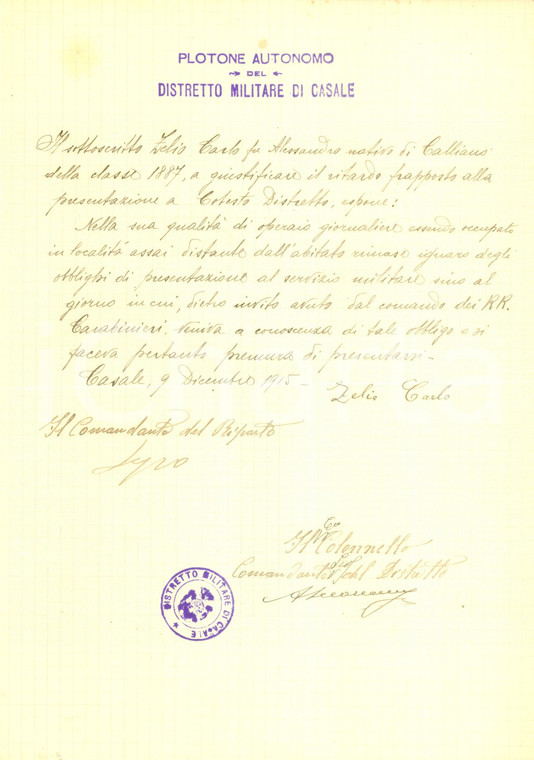 PLOTONE AUTONOMO
DEL
DISTRETTO MILITARE DI CASALE
Il sottoscritto Zelio Carlo fu Alessandro nativo di Calliano
della classe 1887, a giustificare il ritardo frapposto alla
presentazione a Cotesto Distretto, espone:
Nella sua qualità di operaio giornaliere essendo occupato
in località assai distante dall'abitato rimase ignaro degli
obblighi di presentazione al servizio militare sino al
giorno in cui, dietro invito avuto dal comando dei RR.
Carabinieri veniva a conoscenza di tale obbligo e si
faceva pertanto premura di presentarsi.-
Casale, 9 Dicembre 1915-
Zelio Carlo
Il Comandante del Riparto
Il Colonnello
Comandante del Distretto
DISTRETTO MILITARE DI CASALE